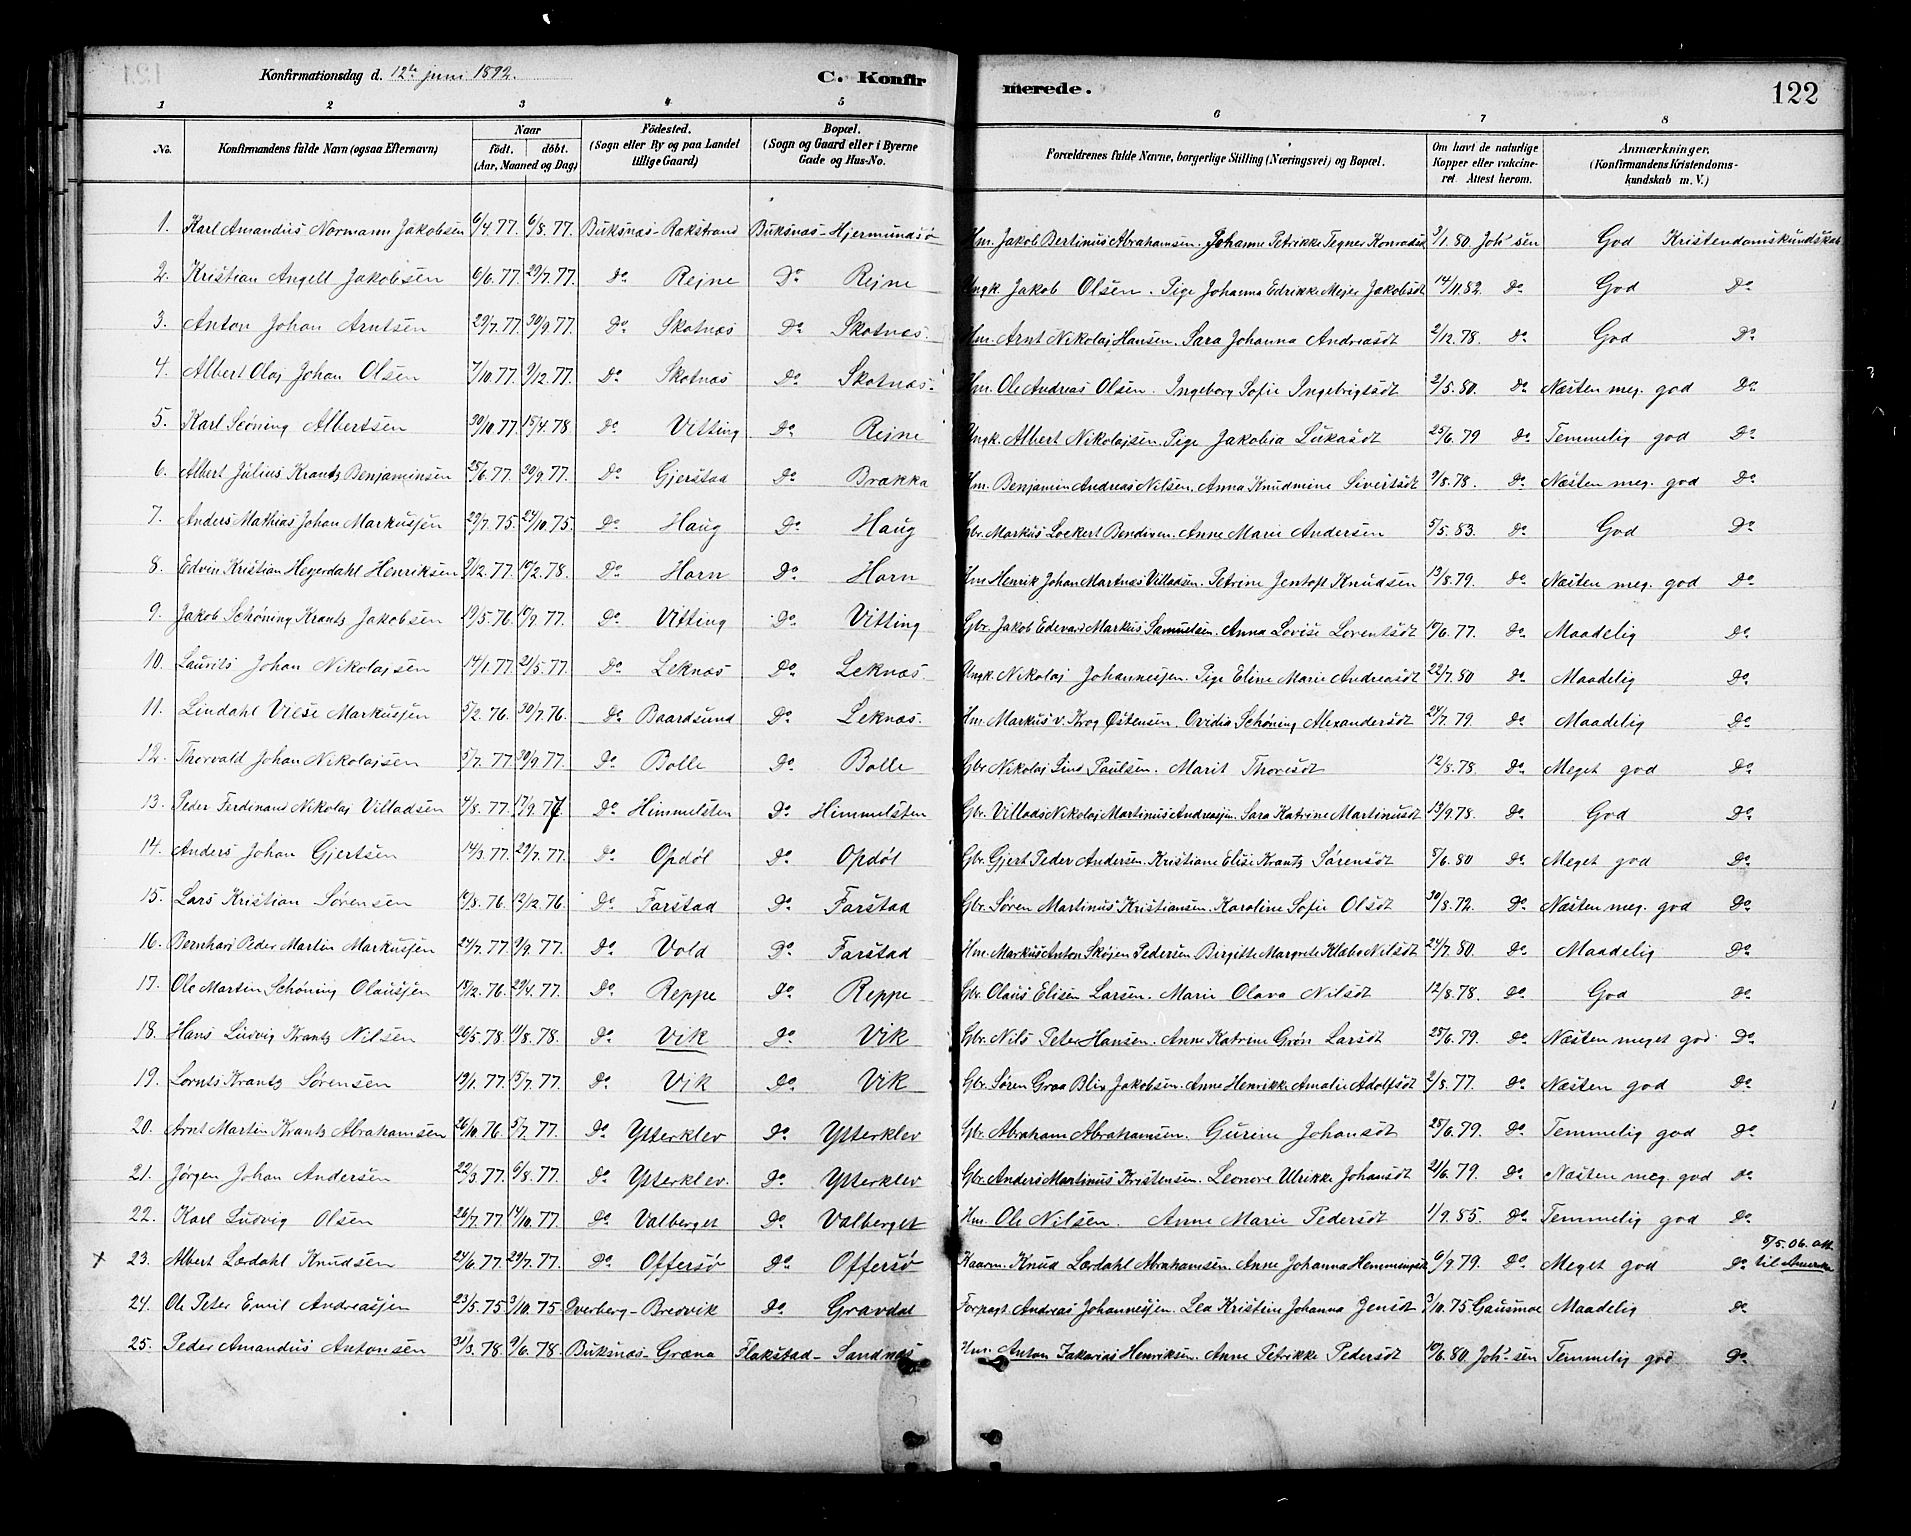 Konfirmationsdag d. 12te juni 1892.
C. Konfirmerede.
122
1 2 3 4 5 6 7 8
No. Konfirmandens fulde Navn (ogsaa Efternavn) Naar født. døbt. (Aar, Maaned og Dag) Födested. (Sogn eller By og paa Landet tillige Gaard) Bopæl. (Sogn og Gaard eller i Byerne Gade og Hus-No. Forældrenes fulde Navne, borgerlige Stilling (Næringsvei) og Bopæl. Om havt de naturlige Kopper eller vakcineret. Attest herom. Anmærkninger. (Konfirmandens Kristendomskundskab m. V.)
1. Karl Amandus Normann Jakobsen 6/4.77. 6/8.77. Buksnæs - Rakstrand Buksnæs - Hjermundsø Hm. Jakob Bertinus Abrahamsen. Johanna Petrikke Tegner Konradsdt 3/1.80 Johssen God Kristendomskundskab
2. Kristian Angell Jakobsen 6/6.77. 29/7.77. Do Rejne Do Rejne Ungk. Jakob Olsen. Pige Johanna Edrikke Mejer Jakobsdt 14/11.82. Do God Do
3. Anton Johan Arntsen 29/7.77. 30/9.77. Do Skotnæs Do Skotnæs. Hm. Arnt Nikolaj Hansen. Sara Johanna Andreasdt 2/12.78. Do God Do
4. Albert Olaj Johan Olsen 7/10.77. 9/12.77. Do Skotnæs Do Skotnæs. Hm. Ole Andreas Olsen. Ingeborg Sofie Ingebrigtsdt 2/5.80. Do Næsten meg. god Do
5. Karl Scöning Albertsen 30/10.77. 15/4.78. Do Vitting Do Rejne Ungk. Albert Nikolajsen. Pige Jakobia Lukasdt 25/6.79 Do Temmelig god Do
6. Albert Julius Krantz Benjaminsen 25/6.77. 30/9.77. Do Gjerstad Do Brakka Hm. Benjamin Andreas Nilsen. Anna Knudmine Sivertsdt 9/8.78. Do Næsten meg. god Do
7. Anders Mathias Johan Markussen 29/7.75. 24/10.75. Do Haug Do Haug Gbr. Markus Lockert Bendixen. Anne Marie Andersen 5/5.83. Do God Do
8. Edvin Kristian Heyerdahl Henriksen 9/12.77. 10/2.78. Do Horn Do Horn Hm Henrik Johan Martnæs Villadsen. Petrine Jentoft Knudsen 13/8.79. Do Næsten meg. god Do
9. Jakob Schøning Krantz Jakobsen 19/5.76 17/9.77. Do Vitting Do Vitting Gbr. Jakob Edevard Markus Samuelsen. Anna Lovise Lorentsdt 17/6.77. Do Maadelig Do
10. Laurits Johan Nikolajsen 14/1.77. 21/5.77. Do Leknæs Do Leknæs. Ungk. Nikolaj Johannessen. Pige Eline Marie Andreasdt 22/7.80 Do Maadelig Do
11. Lindahl Vilse Markussen 5/2.76. 30/7.76. Do Baardsund Do Leknæs. Hm. Markus v. Krog Østensen. Ovidia Schøning Alexandersdt 24/7.79. Do Maadelig Do
12. Thorvald Johan Nikolajsen 5/7.77. 30/9.77. Do Bolle Do Bolle Gbr Nikolaj Lind Paulsen. Marit Thoresdt 12/8.78. Do Meget god Do
13. Peder Ferdinand Nikolaj Villadsen 4/8.77. 17/9.77. Do Himmelsten Do Himmelsten Gbr. Villads Nikolaj Martinus Andreassen. Sara Katrine Martinusdt 13/9.78. Do God Do
14. Anders Johan Gjertsen 14/3.77. 29/7.77. Do Opdøl Do Opdøl Gbr. Gjert Peder Andersen. Kristiane Elise Krantz Sørensdt 8/6.80 Do Meget god Do
15. Lars Kristian Sørensen 10/8.76. 12/12.76. Do Farstad Do Farstad Gbr. Søren Martinus Kristiansen. Karoline Sofie Olsdt 30/8.72. Do Næsten meg. god Do
16. Bernhard Peder Martin Markussen 24/7.77. 9/9.77. Do Vold Do Farstad Hm. Markus Anton Skøjen Pedersen Birgitte Margrete Klæbo Nilsdt 24/7.80. Do Maadelig Do
17. Ole Martin Schøning Olaussen 18/12.76. 29/4.77. Do Reppe Do Reppe Gbr. Olaus Elisen Larsen. Marie Olava Nilsdt 12/8.78. Do God Do
18. Hans Ludvig Krantz Nilsen 26/5.78. 11/8.78. Do Vik Do Vik Gbr. Nils Peter Hansen. Anne Katrine Grøn Larsdt 25/6.79. Do Næsten meget god Do
19. Lornts Krantz Sørensen 19/1.77. 15/7.77. Do Vik Do Vik Gbr. Søren Graa Blix Jakobsen. Anne Henrikke Amalie Adolfsdt 2/8.77. Do Næsten god Do
20. Arnt Martin Krantz Abrahamsen 26/10.76 5/7.77. Do Ytterklev Do Ytterklev Gbr. Abraham Abrahamsen. Gurine Johansdt 25/6.79. Do Temmelig god Do
21. Jørgen Johan Andersen 22/3.77. 6/8.77. Do Ytterklev. Do Ytterklev Gbr. Anders Martinus Kristensen. Leonore Ulrikke Johansdt 21/6.79. Do Næsten meg. god Do
22. Karl Ludvig Olsen 26/7.77. 14/10.77. Do Valberget Do Valberget Hm. Ole Nilsen. Anne Marie Pedersdt 1/9.85. Do Temmelig god Do
x 23. Albert Lærdahl Knudsen 24/6.77. 29/7.77. Do Offersø Do Offersø Kaarm. Knud Lærdahl Abrahamsen. Anne Johanna Hemmingsdt 6/9.79. Do Meget god Do 8/5.06. att. til Amerika
24. Ole Peter Emil Andreassen 23/5.75 3/10.75 Overberg - Bredvik Do Gravdal Forpagt. Andreas Johannessen. Lea Kristine Johanna Jensdt 3/10.75 Gausmoe Maadelig Do
25. Peder Amandus Antonsen 31/3.78 9/6.78. Buksnæs - Græna Flakstad - Sandnæs Hm. Anton Zakarias Henriksen. Anne Petrikke Pedersdt 10/6.80. Johssen Temmelig god Do